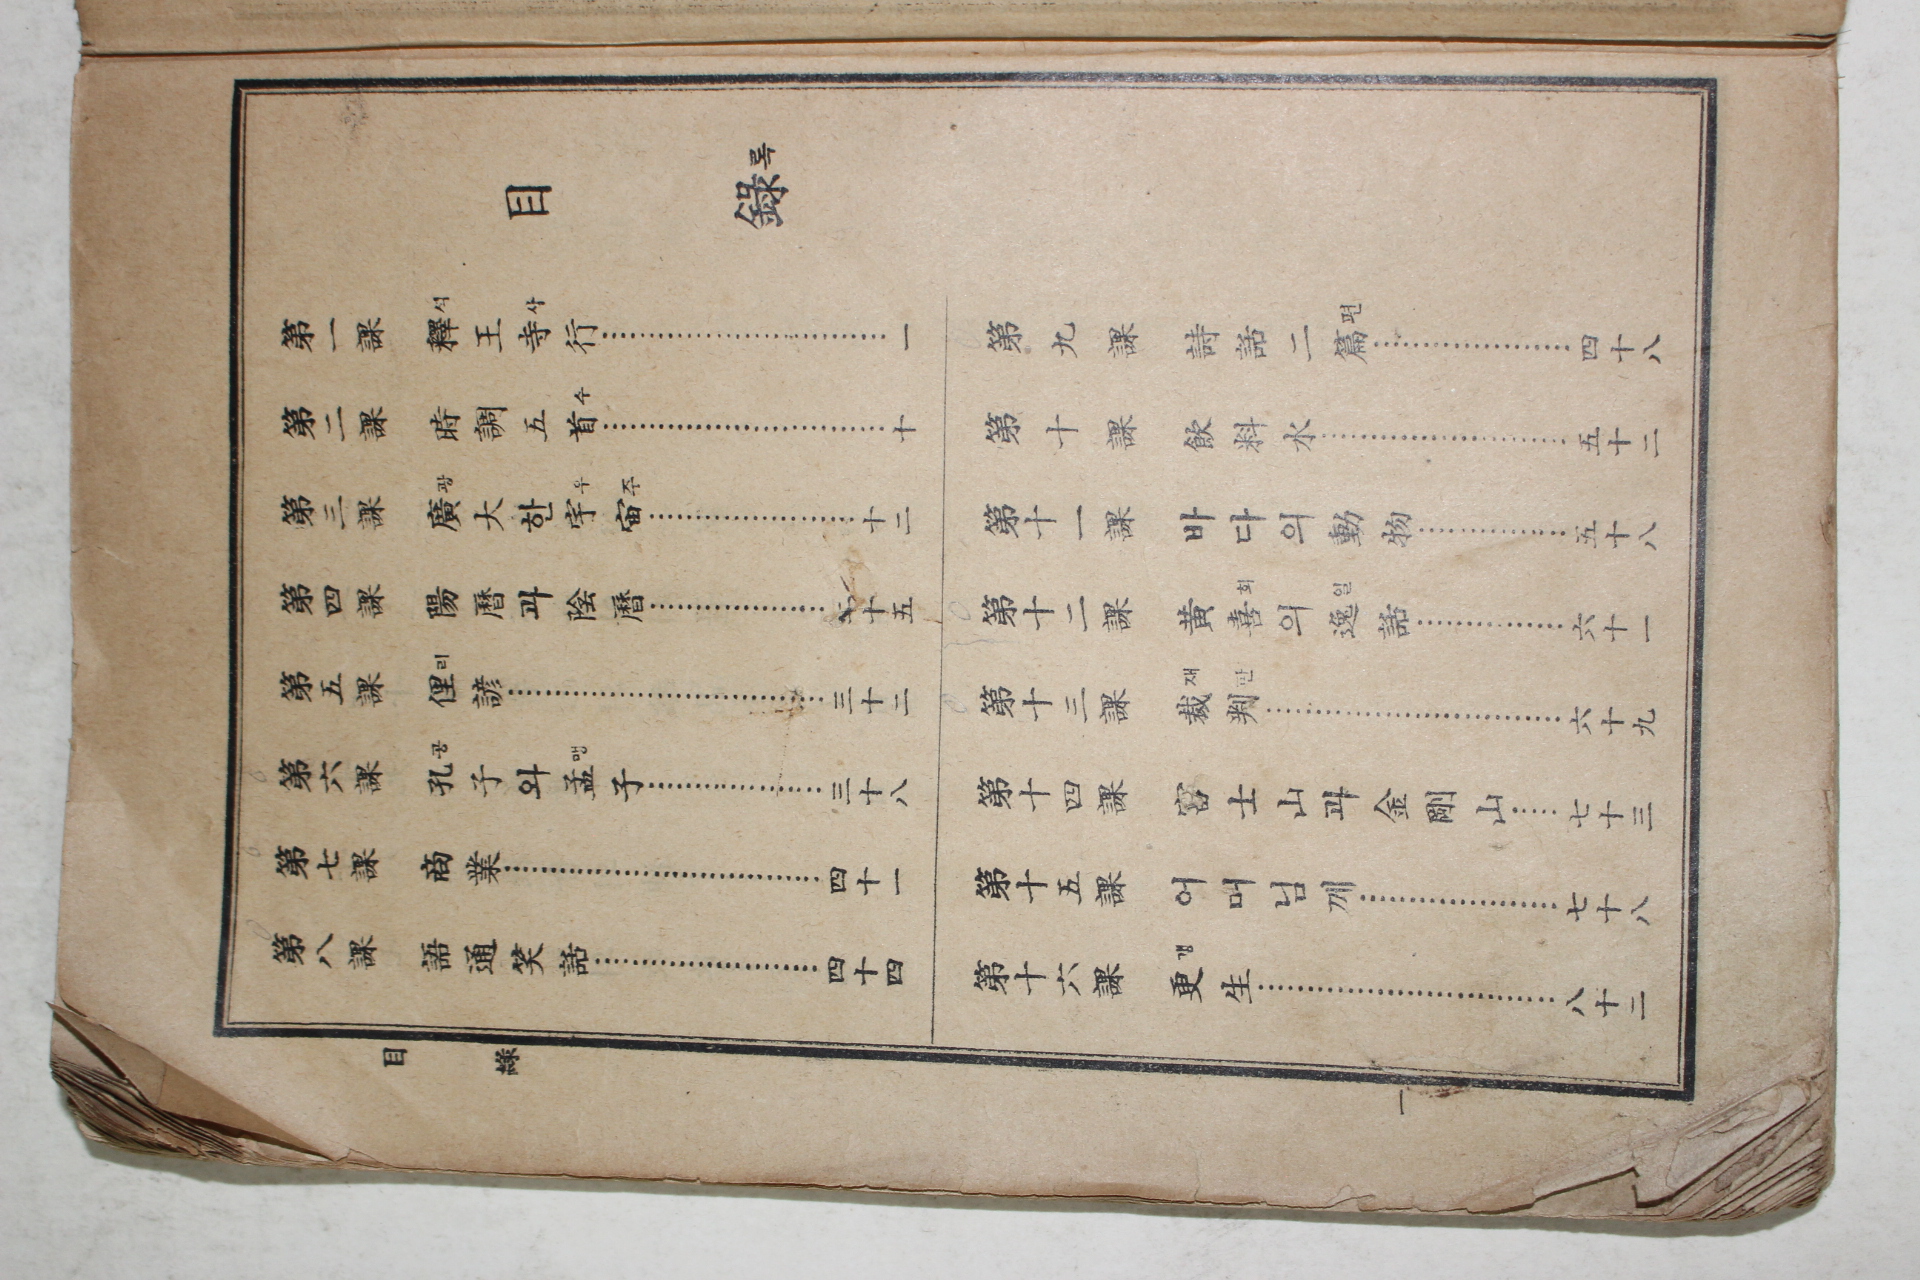 目錄록
第一課 釋석王寺사行…………一
第二課 時調五首수…………十
第三課 廣광大한宇우宙주…………十二
第四課 陽曆과陰曆…………二十五
第五課 俚리諺…………三十二
第六課 孔공子와孟맹子…………三十八
第七課 商業…………四十一
第八課 語通笑話…………四十四
第九課 詩話二篇편…………四十八
第十課 飮料水…………五十二
第十一課 바다의動物…………五十八
第十二課 黃喜희의逸일話…………六十一
第十三課 裁재判판…………六十九
第十四課 富士山과金剛山……七十三
第十五課 어머님께…………七十八
第十六課 更갱生…………八十二
目錄
一